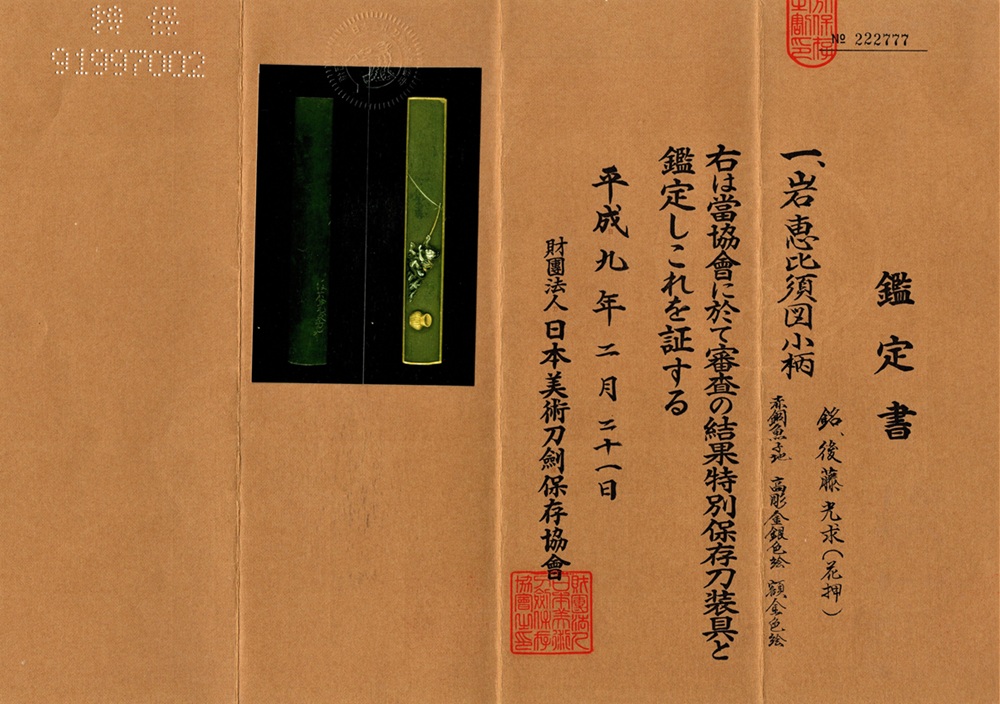 鑑定書
一、岩恵比須図小柄
銘、後藤光求(花押)
赤銅魚子地 高彫金銀色絵 額金色絵
右は當協會に於て審査の結果特別保存刀装具と
鑑定しこれを証する
平成九年二月二十一日
財團法人日本美術刀劍保存協會
№ 222777
特保
91997002